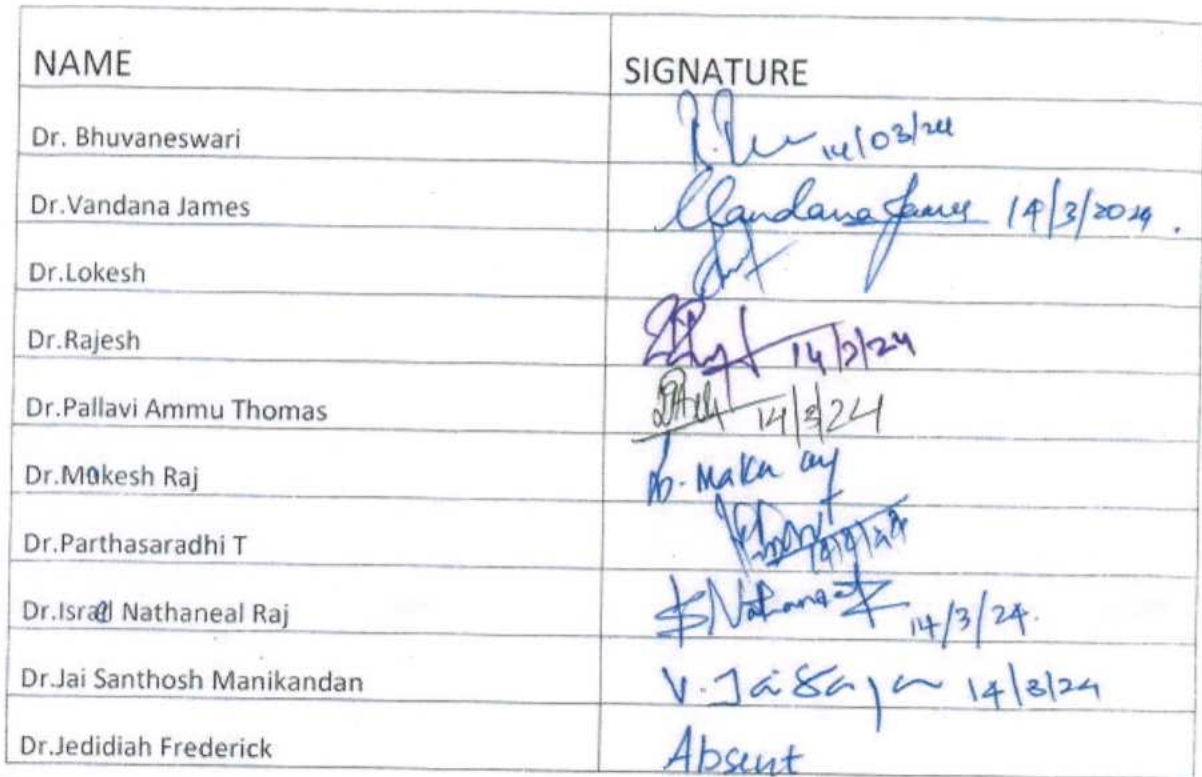 NAME SIGNATURE
Dr. Bhuvaneswari 14/03/24
Dr.Vandana James Vandana James 14/3/2024.
Dr.Lokesh
Dr.Rajesh 14/3/24
Dr.Pallavi Ammu Thomas 14/3/24
Dr.Makesh Raj
Dr.Parthasaradhi T
Dr.Israel Nathaneal Raj 14/3/24.
Dr.Jai Santhosh Manikandan 14/3/24
Dr.Jedidiah Frederick Absent